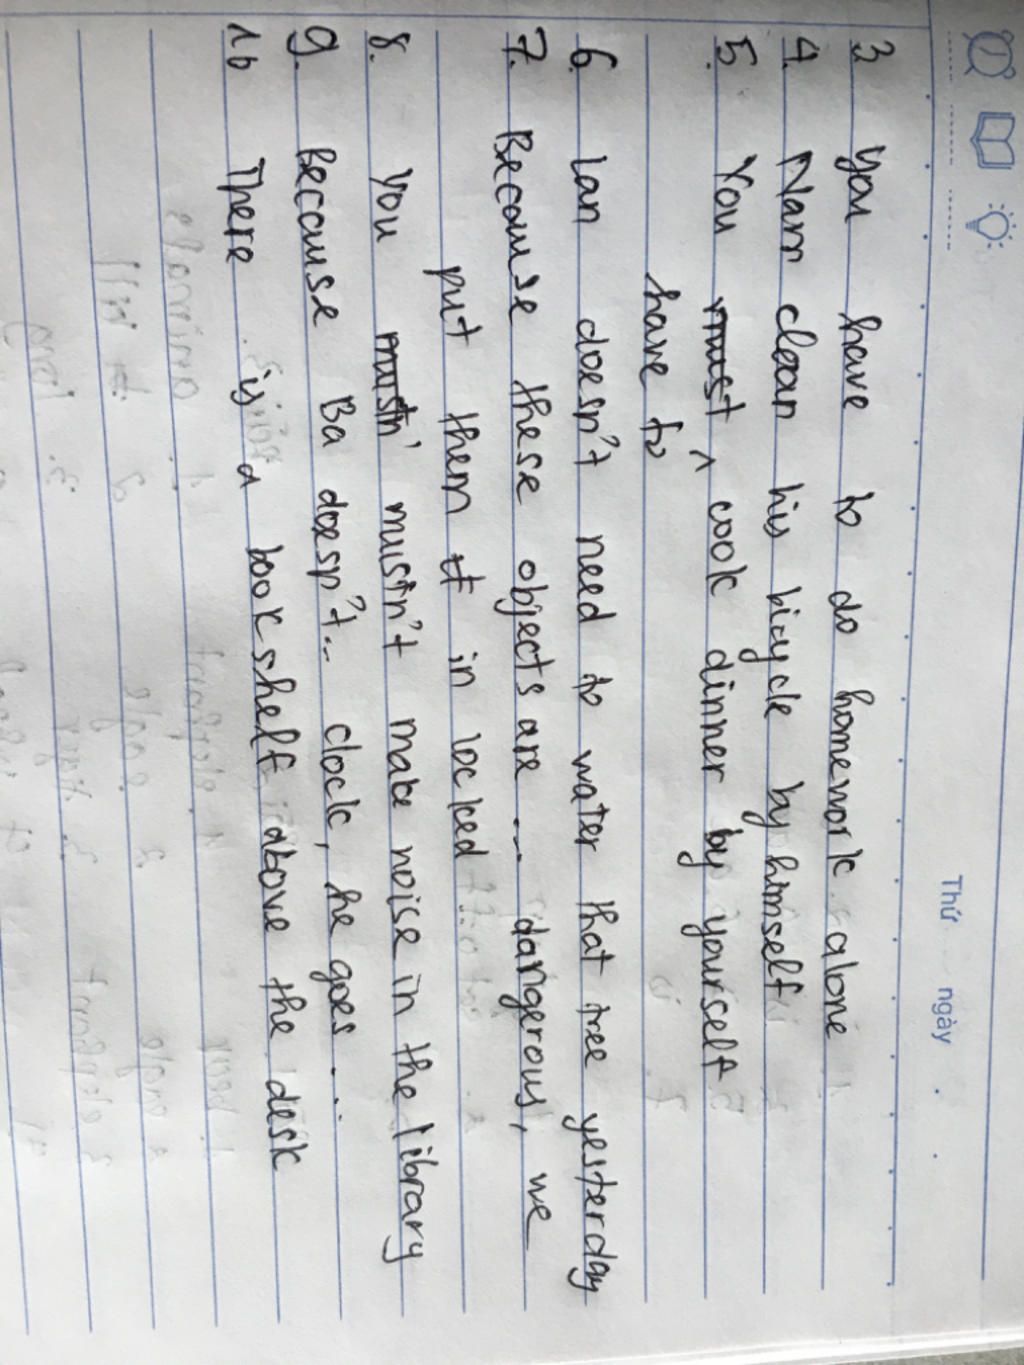 Thứ ngày
3 You have to do homework alone
4. Nam clean his bicycle by himself
5. You must cook dinner by yourself
have to
6. Lan doesn't need to water that tree yesterday
7. Because these objects are ... dangerous, we
put them it in locked
8. You mustn' mustn't make noise in the library
9. Because Ba doesn't... clock, he goes ...
10 There is a bookshelf above the desk